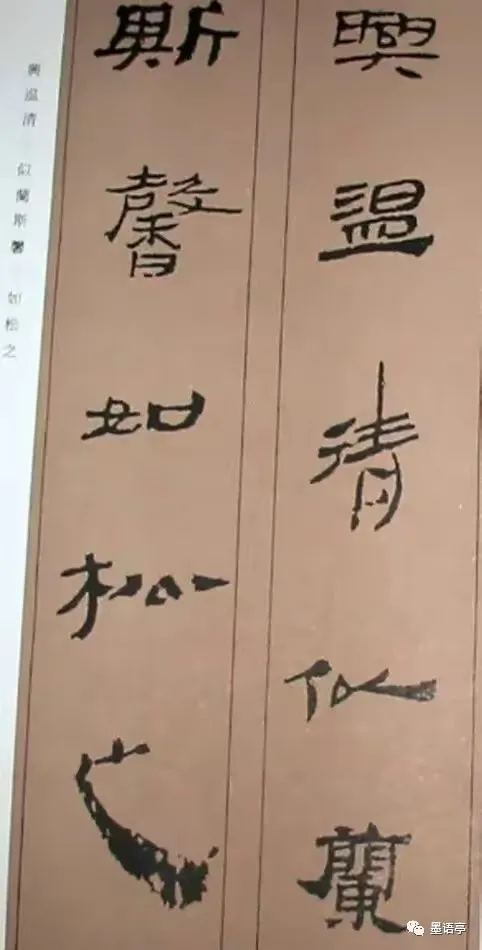 興温清似蘭
斯馨如松之
興温清 似蘭斯馨 如松之
墨语亭